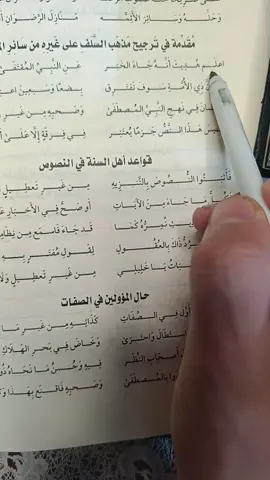 وَحَلُّهُ وَسَائِرَ الْأَئِمَّهْ مَنَازِلَ الرِّضْوَانِ
مقدمة في ترجيح مذهب السلف على غيره من سائر
اعْلَمْ هُدِيتَ أَنَّهُ جَاءَ الْخَبَرْ عَنِ النَّبِيِّ الْمُقْتَفَى
ذِي الْأُمَّةِ سَوْفَ تَفْتَرِقْ بِضْعًا وَسَبْعِينَ
انَ فِي نَهْجِ النَّبِيِّ الْمُصْطَفَى وَصَحْبِهِ مِنْ غَيْرِ
هَذَا النَّصُّ جَزْمًا يُعْتَبَرْ فِي فِرْقَةٍ إِلَّا عَلَى
قواعد أهل السنة في النصوص
فَأَثْبَتُوا النُّصُوصَ بِالتَّنْزِيهِ مِنْ غَيْرِ تَعْطِيلٍ
مَا جَاءَ مِنَ الْآيَاتِ أَوْ صَحَّ فِي الْأَخْبَارِ
نُمِرُّهُ كَمَا قَدْ جَاءَ فَاسْمَعْ مِنْ
ذَاكَ بِالْعُقُولِ لِقَوْلِ مُفْتَرٍ بِهِ
يَا خَلِيلِي مِنْ غَيْرِ تَعْطِيلٍ
حال المؤولين في الصفات
أَوَّلَ فِي الصِّفَاتِ كَذَاتِهِ مِنْ غَيْرِ مَا
اسْتَطَالَ وَاجْتَرَى وَخَاضَ فِي بَحْرِ الْهَلَاكِ
أَصْحَابِ النَّظَرْ فِيهِ وَحُسْنَ مَا نَحَاهُ
بِالْمُصْطَفَى وَصَحْبِهِ فَاقْنَعْ بِهَذَا